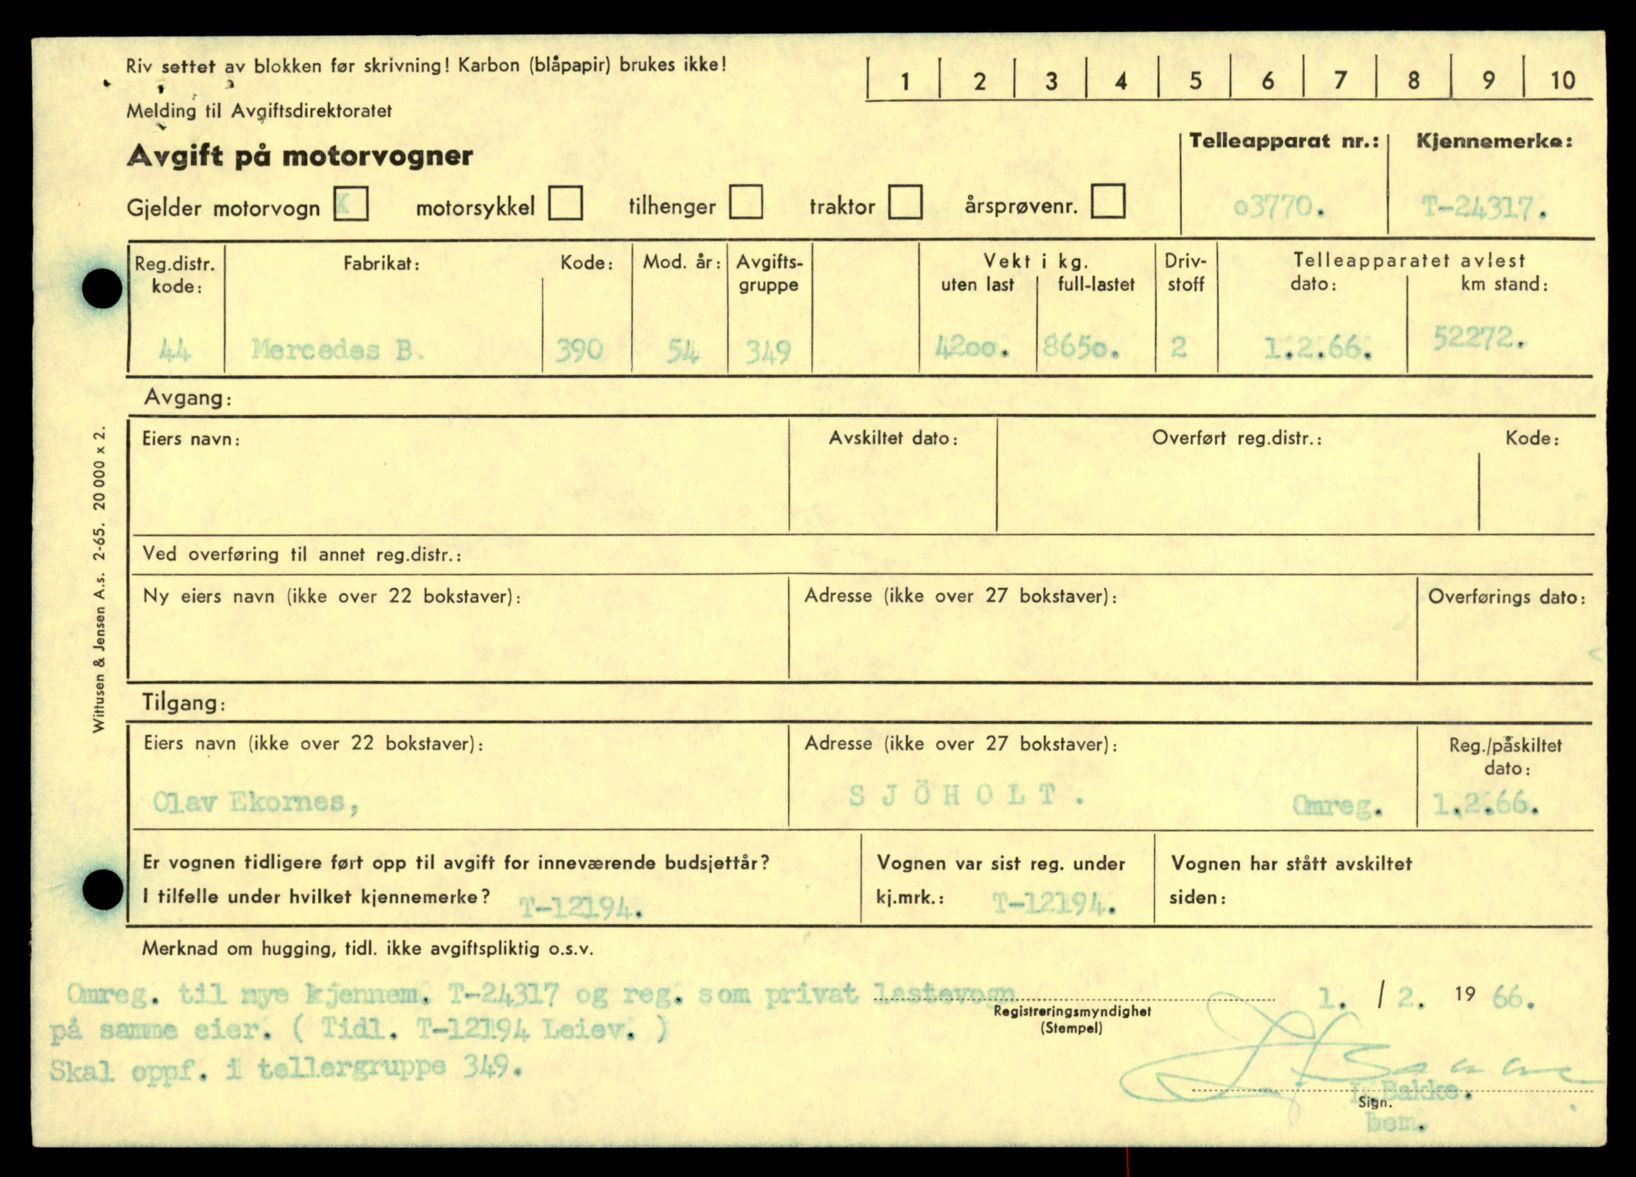 Riv settet av blokken før skrivning! Karbon (blåpapir) brukes ikke!
1 2 3 4 5 6 7 8 9 10
Melding til Avgiftsdirektoratet
Avgift på motorvogner
Telleapparat nr.: Kjennemerke:
Gjelder motorvogn X motorsykkel tilhenger traktor årsprøvenr.
03770. T-24317.
Reg.distr. kode: Fabrikat: Kode: Mod. år: Avgifts-gruppe Vekt i kg. uten last full-lastet Driv-stoff Telleapparatet avlest dato: km stand:
44 Mercedes B. 390 54 349 4200. 8650. 2 1.2.66. 52272.
Avgang:
Eiers navn: Avskiltet dato: Overført reg.distr.: Kode:
Ved overføring til annet reg.distr.:
Ny eiers navn (ikke over 22 bokstaver): Adresse (ikke over 27 bokstaver): Overførings dato:
Tilgang:
Eiers navn (ikke over 22 bokstaver): Adresse (ikke over 27 bokstaver): Reg./påskiltet dato:
Olav Ekornes, SJÖHOLT. Omreg. 1.2.66.
Er vognen tidligere ført opp til avgift for inneværende budsjettår? Vognen var sist reg. under Vognen har stått avskiltet
I tilfelle under hvilket kjennemerke? T-12194. kj.mrk.: T-12194. siden:
Merknad om hugging, tidl. ikke avgiftspliktig o.s.v.
Omreg. til nye kjennem. T-24317 og reg. som privat lastevogn 1. / 2. 19 66.
Registreringsmyndighet
(Stempel)
på samme eier. ( Tidl. T-12194 Leiev. )
Skal oppf. i tellergruppe 349.
Bakke.
Sign.
bem.
Wittusen & Jensen A.s. 2-65. 20 000 x 2.